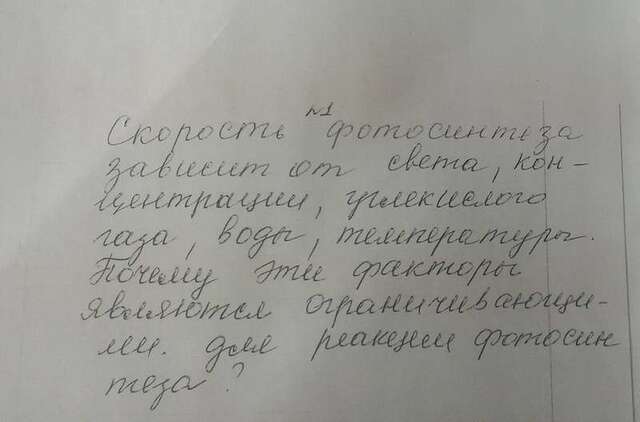 №1
Скорость фотосинтеза
зависит от света, кон-
центрации, углекислого
газа, воды, температуры.
Почему эти факторы
являются ограничивающи-
ми. для реакции фотосин
теза?